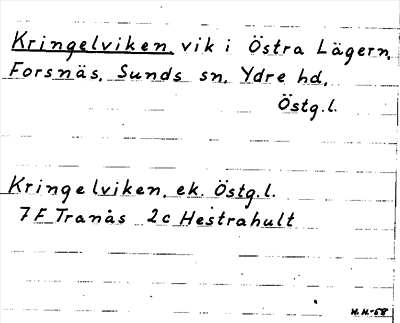 Kringelviken, vik i Östra Lägern,
Forsnäs, Sunds sn, Ydre hd,
Östg.l.
Kringelviken, ek. Östg.l.
7 F Tranås 2c Hestrahult
H.H.-68